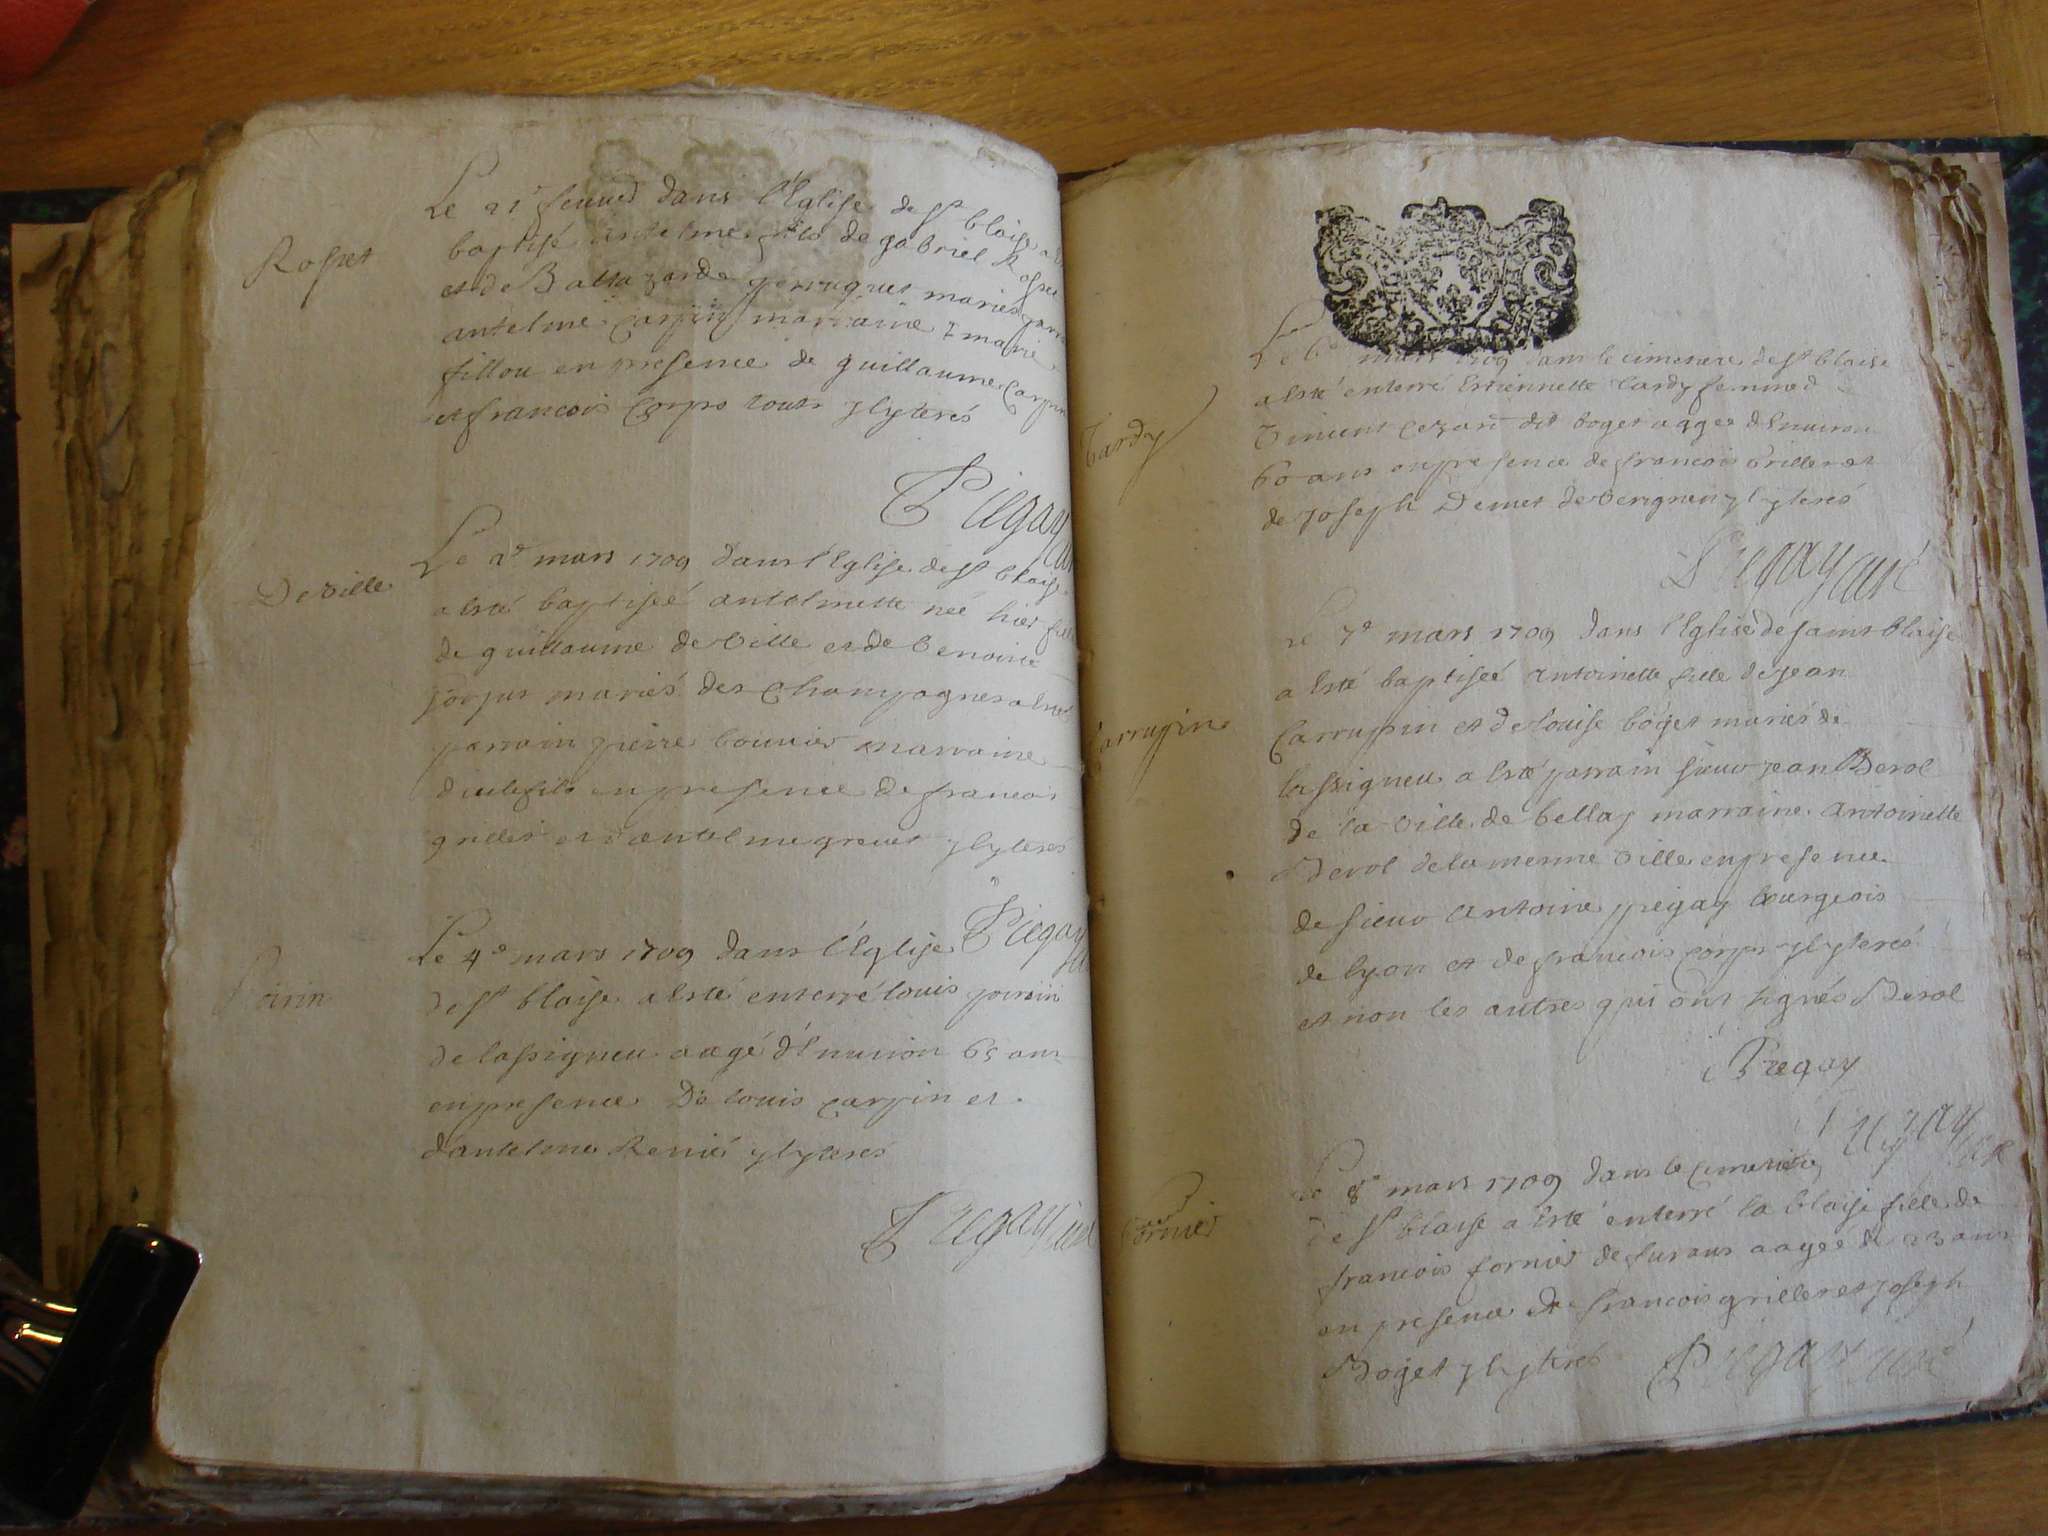 Rosset
Le 21e feuvrier dans l'Eglise de st blaise a
baptisé antelme fils de gabriel Rosset
et de Baltazarde perruquet mariés
antelme carpin marraine marie
fillou en presence de guillaume Carpin
et francois Corps tous yllyterés
Piegay
De Ville
Le 2e mars 1709 dans l'Eglise de st blaise
a esté baptiseé antelmette neé hier fille
de guillaume de Ville et de Benoite
mariés des Champagnes a esté
parrain pierre bouvier marraine
en presence de francois
grillet et d'antelme grevet yllyterés
Piegay
Poirin
Le 4e mars 1709 dans l'Eglise
de st blaise a esté enterré louis poirin
de lassigneu aagé d'Environ 65 ans
en presence de louis carpin et
d'antelme Renié yllyterés
Piegay curé
Tardy
Le 6e mars 1709 dans le cimetiere de st blaise
a esté enterré Estiennette tardy femme d
Vincent dit boget aagée d'Environ
60 ans en presence de francois grillet et
de joseph Demet de yllyterés
Piegay curé
Carrupin
Le 7e mars 1709 dans l'Eglise de saint Blaise
a esté baptiseé antoinette fille de jean
Carrupin et de louise boget mariés de
lassigneu a esté parrain sieur jean Berol
de la Ville de bellay marraine antoinette
Berol de la meme Ville en presence
de sieur antoine piegay bourgeois
de lyon et de francois corps yllyterés
et non les autres qui ont signés Berol
Piegay
Piegay curé
fornier
Le 8e mars 1709 dans le cimetiere
de st blaise a esté enterré la blaise fille de
francois fornier de furans aageé de 23 ans
en presence de francois grillet et joseph
Boget yllyterés Piegay curé